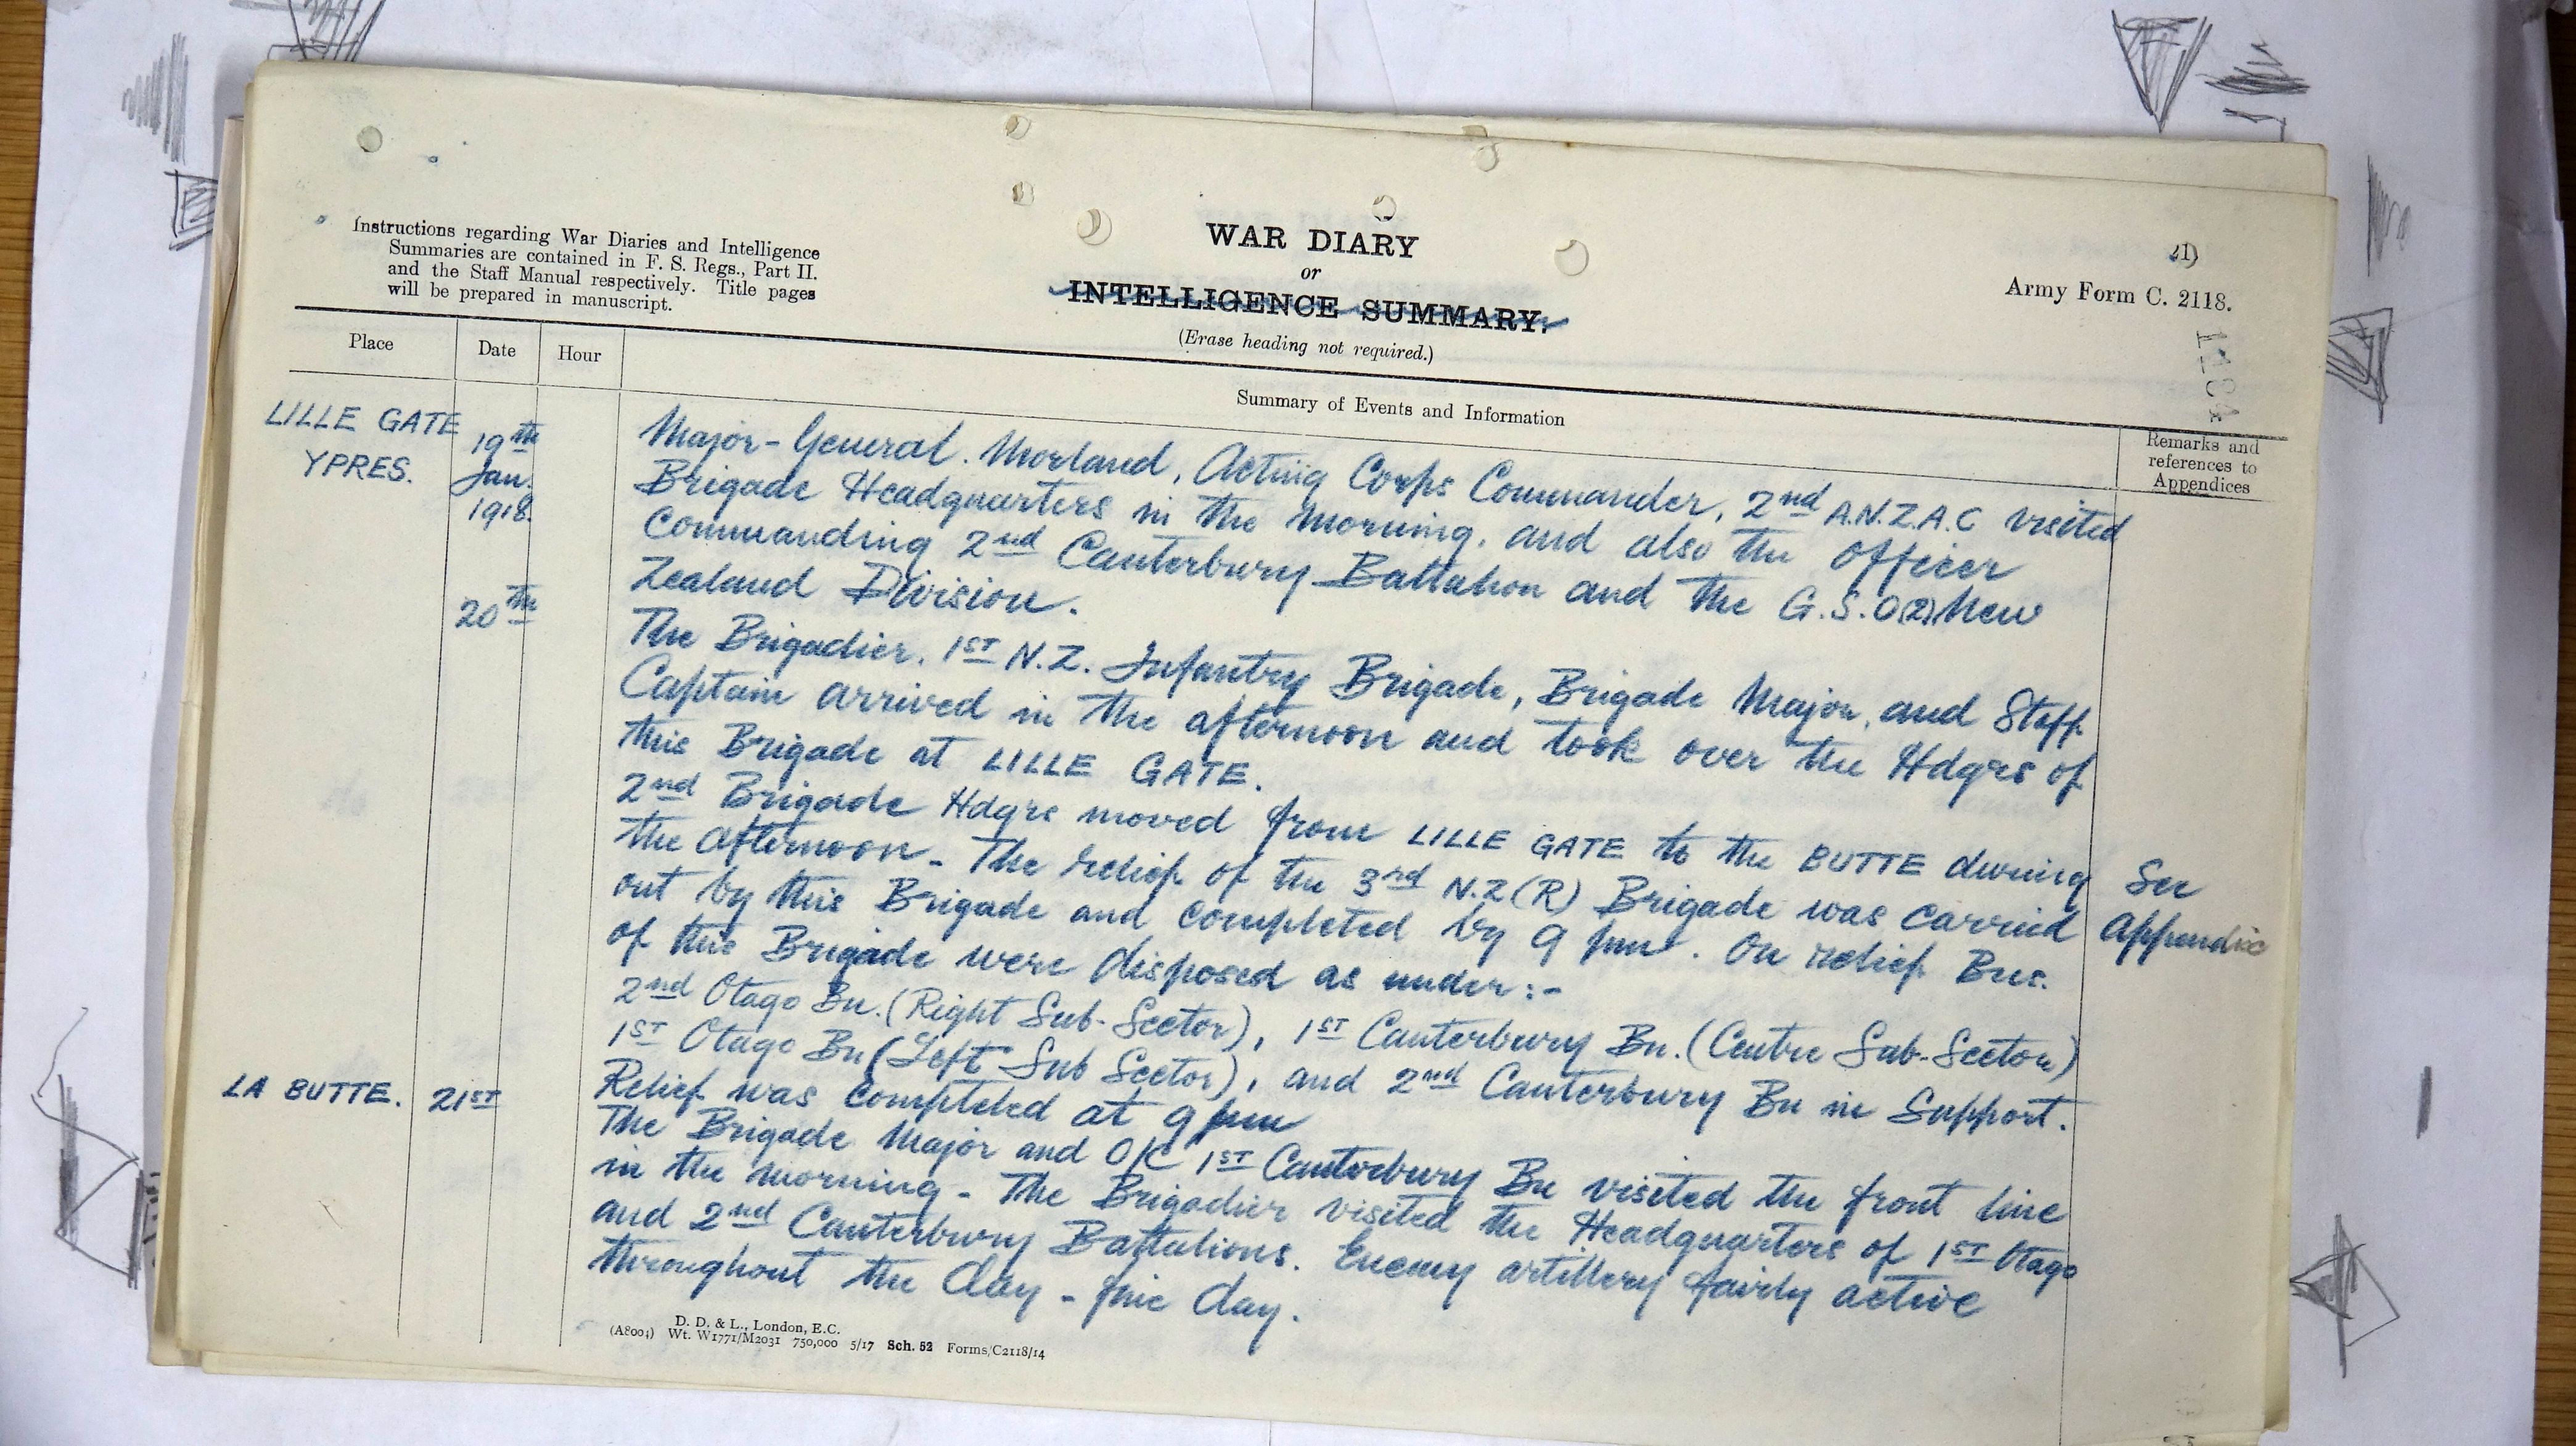 Instructions regarding War Diaries and Intelligence
Summaries are contained in F. S. Regs., Part II.
and the Staff Manual respectively. Title pages
will be prepared in manuscript.
WAR DIARY
or
INTELLIGENCE SUMMARY.
(Erase heading not required.)
Army Form C. 2118.
Place
Date
Hour
Summary of Events and Information
Remarks and
references to
Appendices
LILLE GATE
YPRES.
19th
Jan.
1918.
Major-General. Morland, Acting Corps Commander, 2nd A.N.Z.A.C visited
Brigade Headquarters in the morning, and also the Officer
Commanding 2nd Canterbury Battalion and the G.S.O(2) New
Zealand Division.
20th
The Brigadier, 1ST N.Z. Infantry Brigade, Brigade Major, and Staff
Captain arrived in the afternoon and took over the Hdqrs of
this Brigade at LILLE GATE.
2nd Brigade Hdqrs moved from LILLE GATE to the BUTTE during
the afternoon - The relief of the 3rd N.Z(R) Brigade was carried
out by this Brigade and completed by 9 pm. On relief Bns.
of this Brigade were disposed as under:-
See
Appendix
2nd Otago Bn. (Right Sub-Sector), 1ST Canterbury Bn. (Centre Sub-Sector)
1ST Otago Bn (Left Sub Sector), and 2nd Canterbury Bn in Support.
Relief was completed at 9 pm
LA BUTTE.
21ST
The Brigade Major and O/C 1ST Canterbury Bn visited the front line
in the morning - The Brigadier visited the Headquarters of 1ST Otago
and 2nd Canterbury Battalions. Enemy artillery fairly active
throughout the day - fine day.
D. D. & L., London, E.C.
(A8004) Wt. W1771/M2031 750,000 5/17 Sch. 52 Forms/C2118/14